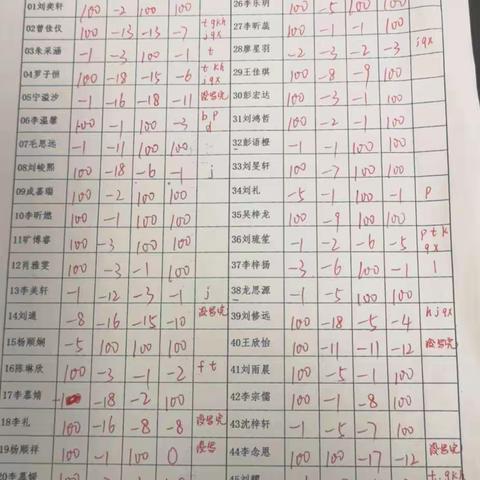 01刘奕轩 100 -2 100 100 26李乐玥 100 -5 100 100
02曾佳仪 100 -13 -13 -7 t gkh jqx 27李昕蕊 100 -1 -1 100
03朱采涵 -1 -3 100 -1 t 28廖星羽 -2 -3 -2 -3 jqx
04罗子恒 100 -18 -15 -6 t kh jqx 29王佳琪 100 -8 -9 100
05宁溢汐 -1 -16 -18 -11 没写完 30彭宏达 100 -3 -1 100
06李温馨 100 -1 100 -3 b p d 31刘鸿哲 100 -2 -1 100
07毛思远 -1 -11 100 100 32彭语橙 100 -1 100 100
08刘峻熙 100 -18 -6 -1 j 33刘昊轩 100 -7 100 100
09成嘉瑞 100 -2 100 100 34刘礼 -5 -1 100 -1 p
10李昕燃 100 -1 100 100 35吴梓龙 100 -9 100 100
11旷博睿 100 -3 100 100 36刘琥笙 -1 -2 -6 -5 p t k qx
12肖雅雯 100 -3 -1 100 37李梓扬 -3 -6 100 -1 l
13李美轩 -1 -12 -3 -1 j 38龙思源 -1 -5 100 100
14刘通 -8 -16 -15 -10 没写完 39刘修远 100 -18 -5 -4 h jqx
15杨顺娴 -5 100 100 100 40王欣怡 100 -11 -11 -12 没写完
16陈琳欣 100 -3 -1 -2 f t 41刘雨晨 100 -5 -1 100
17李嘉婧 -18 -2 100 42李宗儒 100 -1 -8 100
18李礼 100 -16 -8 -8 没写完 43沈梓轩 -1 -5 -7 100
19杨顺祥 -1 100 0 没写 44李念恩 100 100 -17 -12 没写完